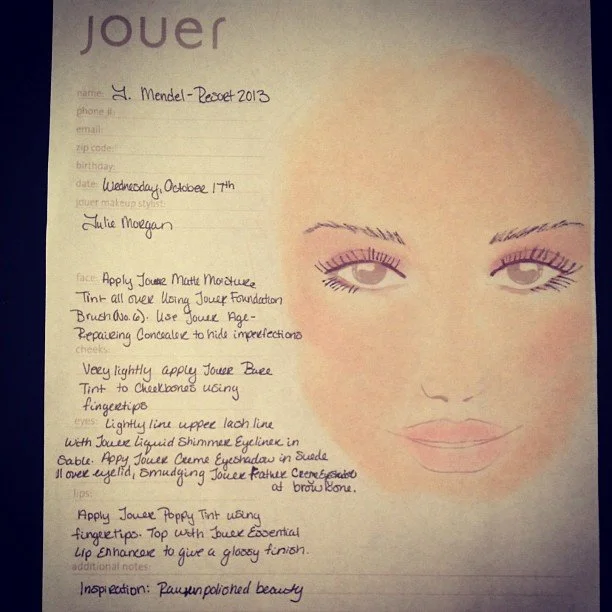 jouer
name: J. Mendel - Resort 2013
phone #:
email:
zip code:
birthday:
date: Wednesday, October 17th
jouer makeup stylist:
Julie Morgan
face: Apply Jouer Matte Moisture
Tint all over Using Jouer Foundation
Brush (No. 6). Use Jouer Age-
Repairing Concealer to hide imperfections
cheeks:
Very lightly apply Jouer Bare
Tint to Cheekbones using
fingertips
eyes: Lightly line upper lash line
with Jouer Liquid Shimmer Eyeliner in
Sable. Appy Jouer Creme Eyeshadow in Suede
all over eyelid, Smudging Jouer Creme Eyeshadow
at browbone.
lips:
Apply Jouer Poppy Tint using
fingertips. Top with Jouer Essential
Lip Enhancer to give a glossy finish.
additional notes:
Inspiration: Raw, unpolished beauty